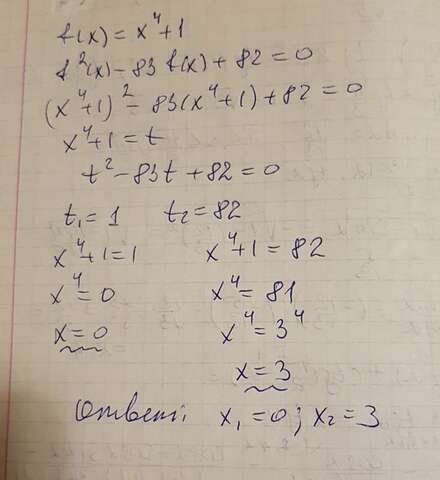 f(x) = x⁴+1
f²(x) - 83 f(x) + 82 = 0
(x⁴+1)² - 83(x⁴+1) + 82 = 0
x⁴+1 = t
t² - 83t + 82 = 0
t₁ = 1 t₂ = 82
x⁴+1 = 1 x⁴+1 = 82
x⁴ = 0 x⁴ = 81
x = 0 x⁴ = 3⁴
x = 3
Ответ: x₁ = 0; x₂ = 3